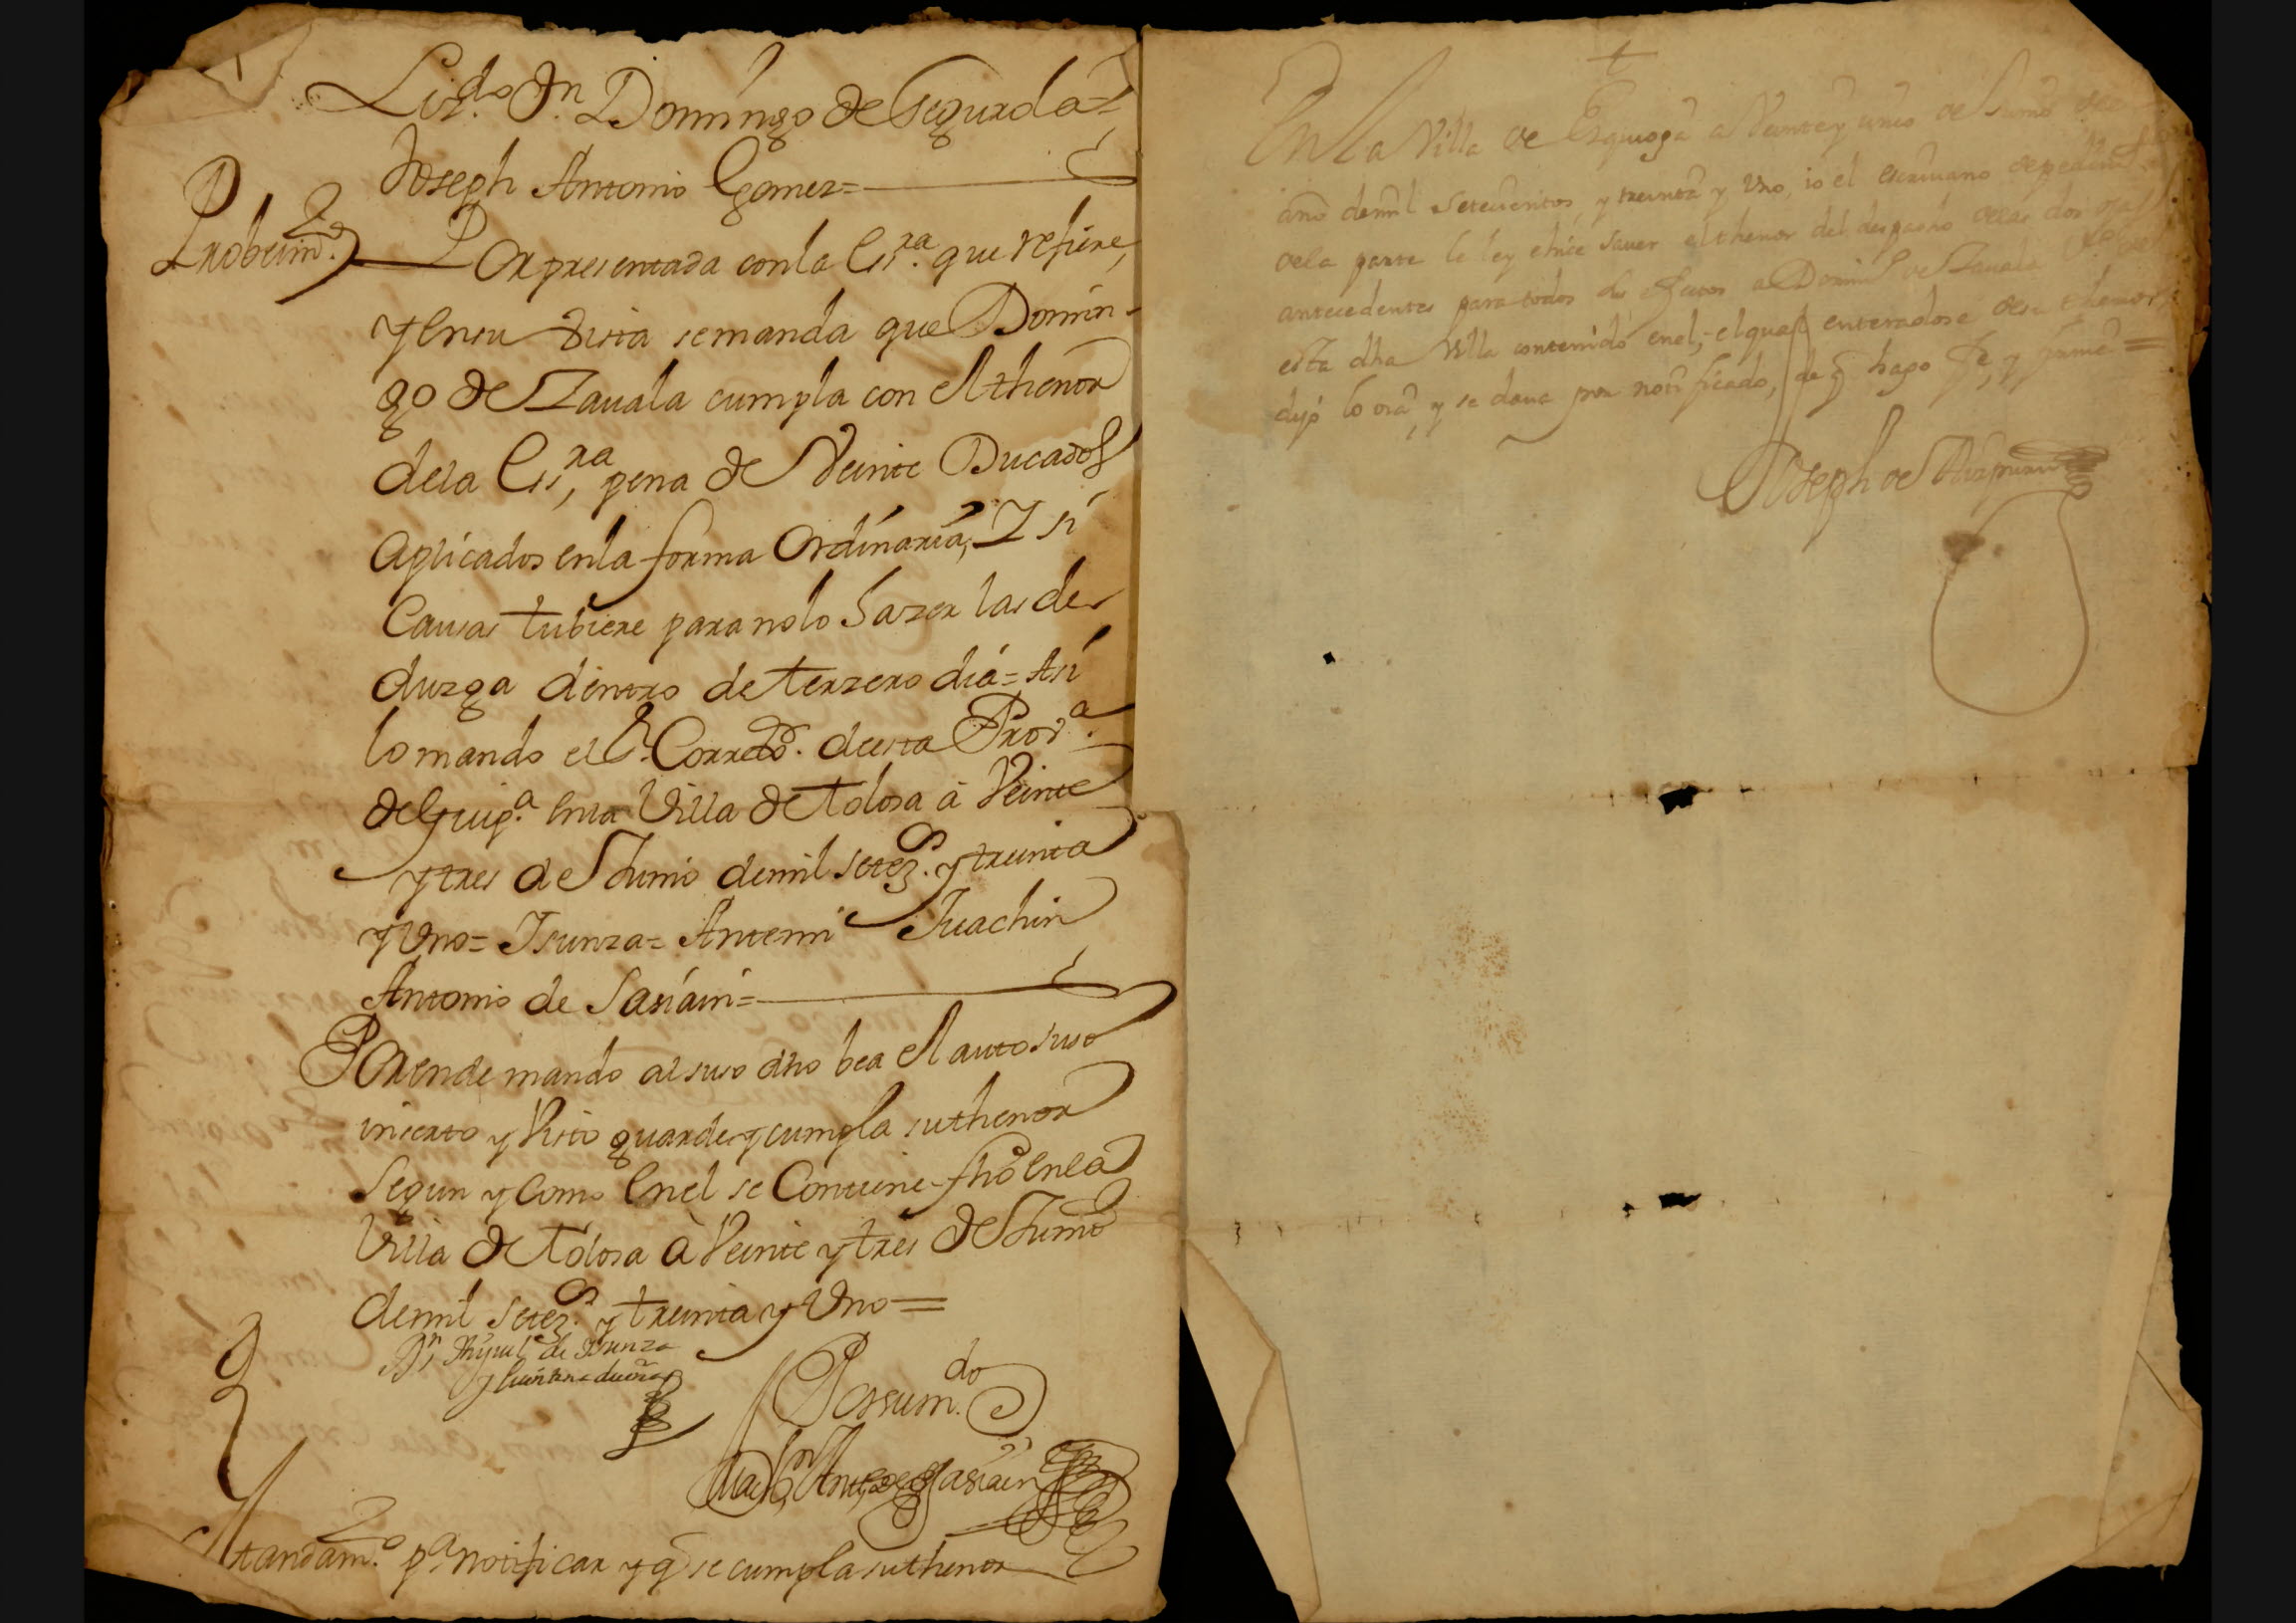 Liz.do Dn. Domingo de Segurola=
Joseph Antonio Gomez=
Probeim.to
Por presentada con la Essra. que refiere,
y en su Vista se manda que Domin-
go de Zauala cumpla con el thenor
de la Essra, pena de Veinte Ducados
aplicados en la forma Ordinaria, Y si
Causas tubiere para no lo hazer las de
duzga dentro de terzero dia= Asi
lo mando el Sr. Corredor. de esta Prova.
de Guipa. en la Villa de Tolosa à Veinte
y tres de Junio de mil setezs. y treinta
y Uno= Isunza= Ante mi Juachin
Antonio de Sasiain=
Por ende mando al suso dho bea el auto suso
inserto y Visto guarde y cumpla su thenor
Segun y Como en el se Contiene fho en la
Villa de Tolosa à Veinte y tres de Junio
de mil setezs. y treinta y Uno=
Dn Miguel de Isunza
y Quintanadueñas
Por su m.do
Juachin Anto de Sasiain
Mandam.to pa. notificar y q se cumpla su thenor
+
En la Villa de Ezquioga a Veinte y de Junio
año de mil Setecientos, y treinta y Uno, io el escriuano de pedimto
de la parte le ley e hice sauer el thenor del despacho de las dos ojas
antecedentes para todos sus efectos a Domingo de Zauala
esta dha Villa contenido en el, el qual enteradose de su thenor
dijo lo oia, y se daua por notificado, de q hago fe, y firme=
Joseph de Aizpuru